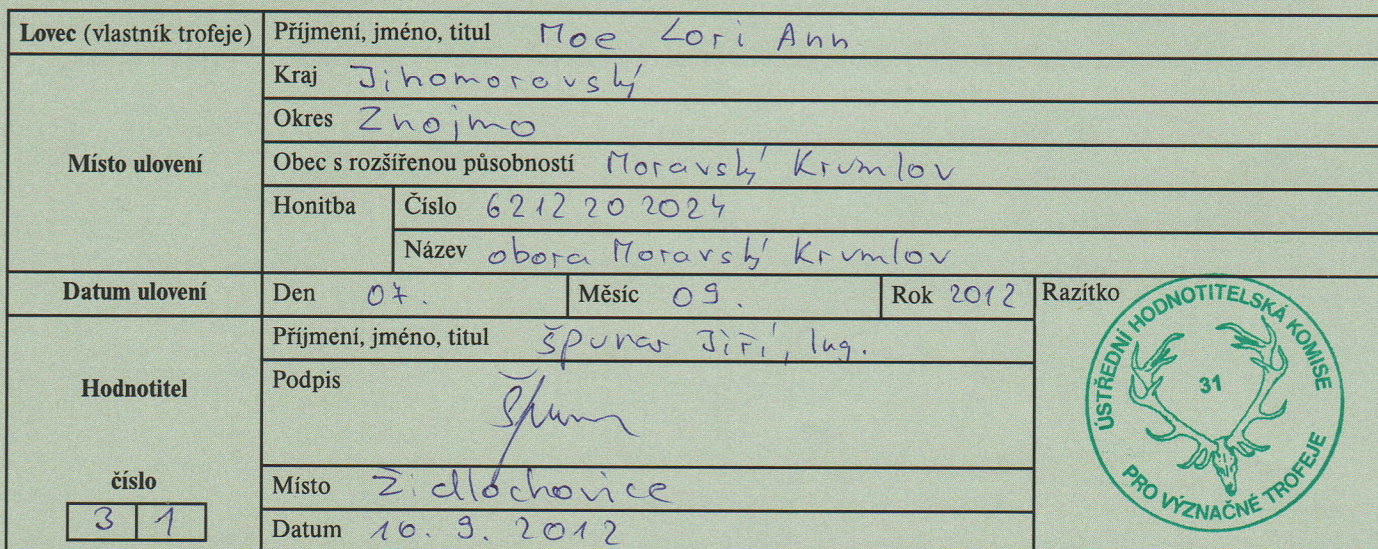 Lovec (vlastník trofeje) Příjmení, jméno, titul Moe Lori Ann
Místo ulovení
Kraj Jihomoravský
Okres Znojmo
Obec s rozšířenou působností Moravský Krumlov
Honitba Číslo 6212 20 2024
Název obora Moravský Krumlov
Datum ulovení Den 07. Měsíc 09. Rok 2012 Razítko
Hodnotitel
číslo
3 1
Příjmení, jméno, titul Špunar Jiří, Ing.
Podpis
Místo Židlochovice
Datum 16. 9. 2012
ÚSTŘEDNÍ HODNOTITELSKÁ KOMISE
31
PRO VÝZNAČNÉ TROFEJE